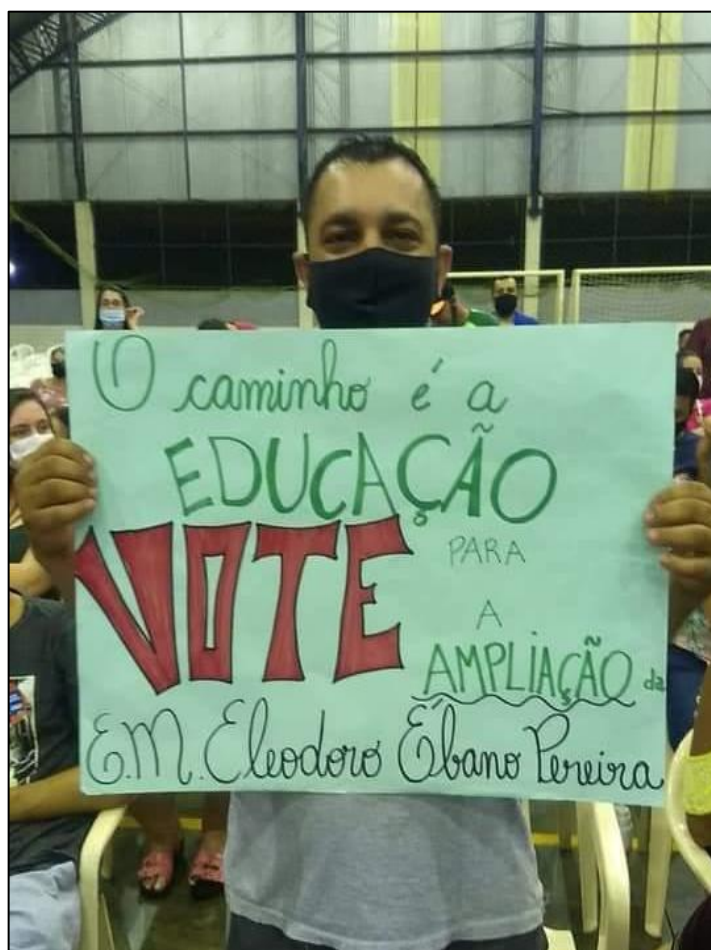 O caminho é a
EDUCAÇÃO
VOTE PARA
A
AMPLIAÇÃO da
E.M. Eleodoro Ébano Pereira